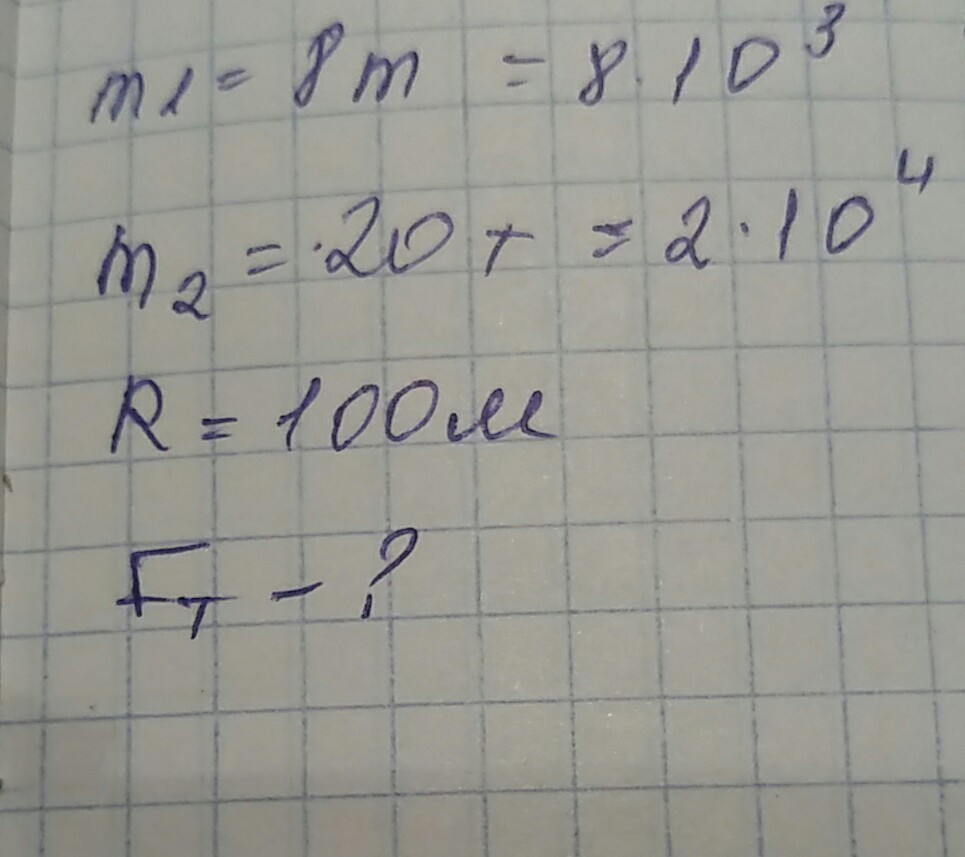 m1 = 8m = 8·10³
m₂ = 20т = 2·10⁴
R = 100м
Fт - ?